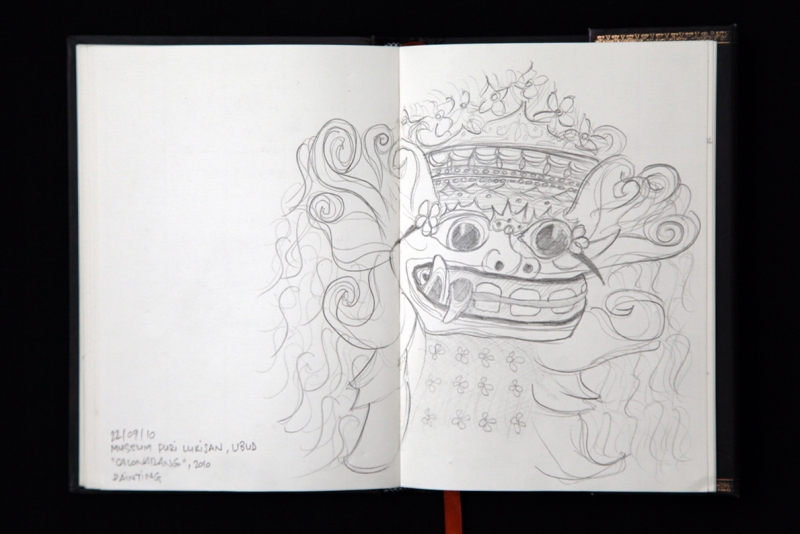 22/09/10
MUSEUM PURI LUKISAN, UBUD
"CALONARANG", 2010
PAINTING